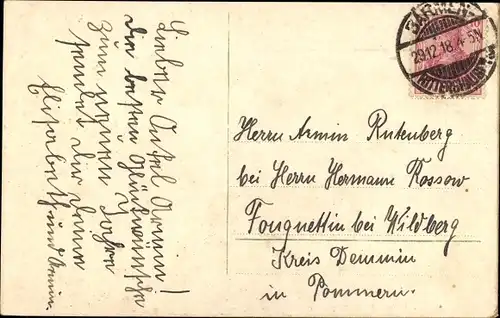 Lieber Onkel Armin!
Die besten Glückwünsche
zum neuen Jahre
sendet Dir Deine
Elisabeth und Armin.
BARMEN
29.12.18. 4-5N
RITTERSHAUSEN
Herrn Armin Rutenberg
bei Herrn Hermann Kossow
Fouquettin bei Wildberg
Kreis Demmin
in Pommern.